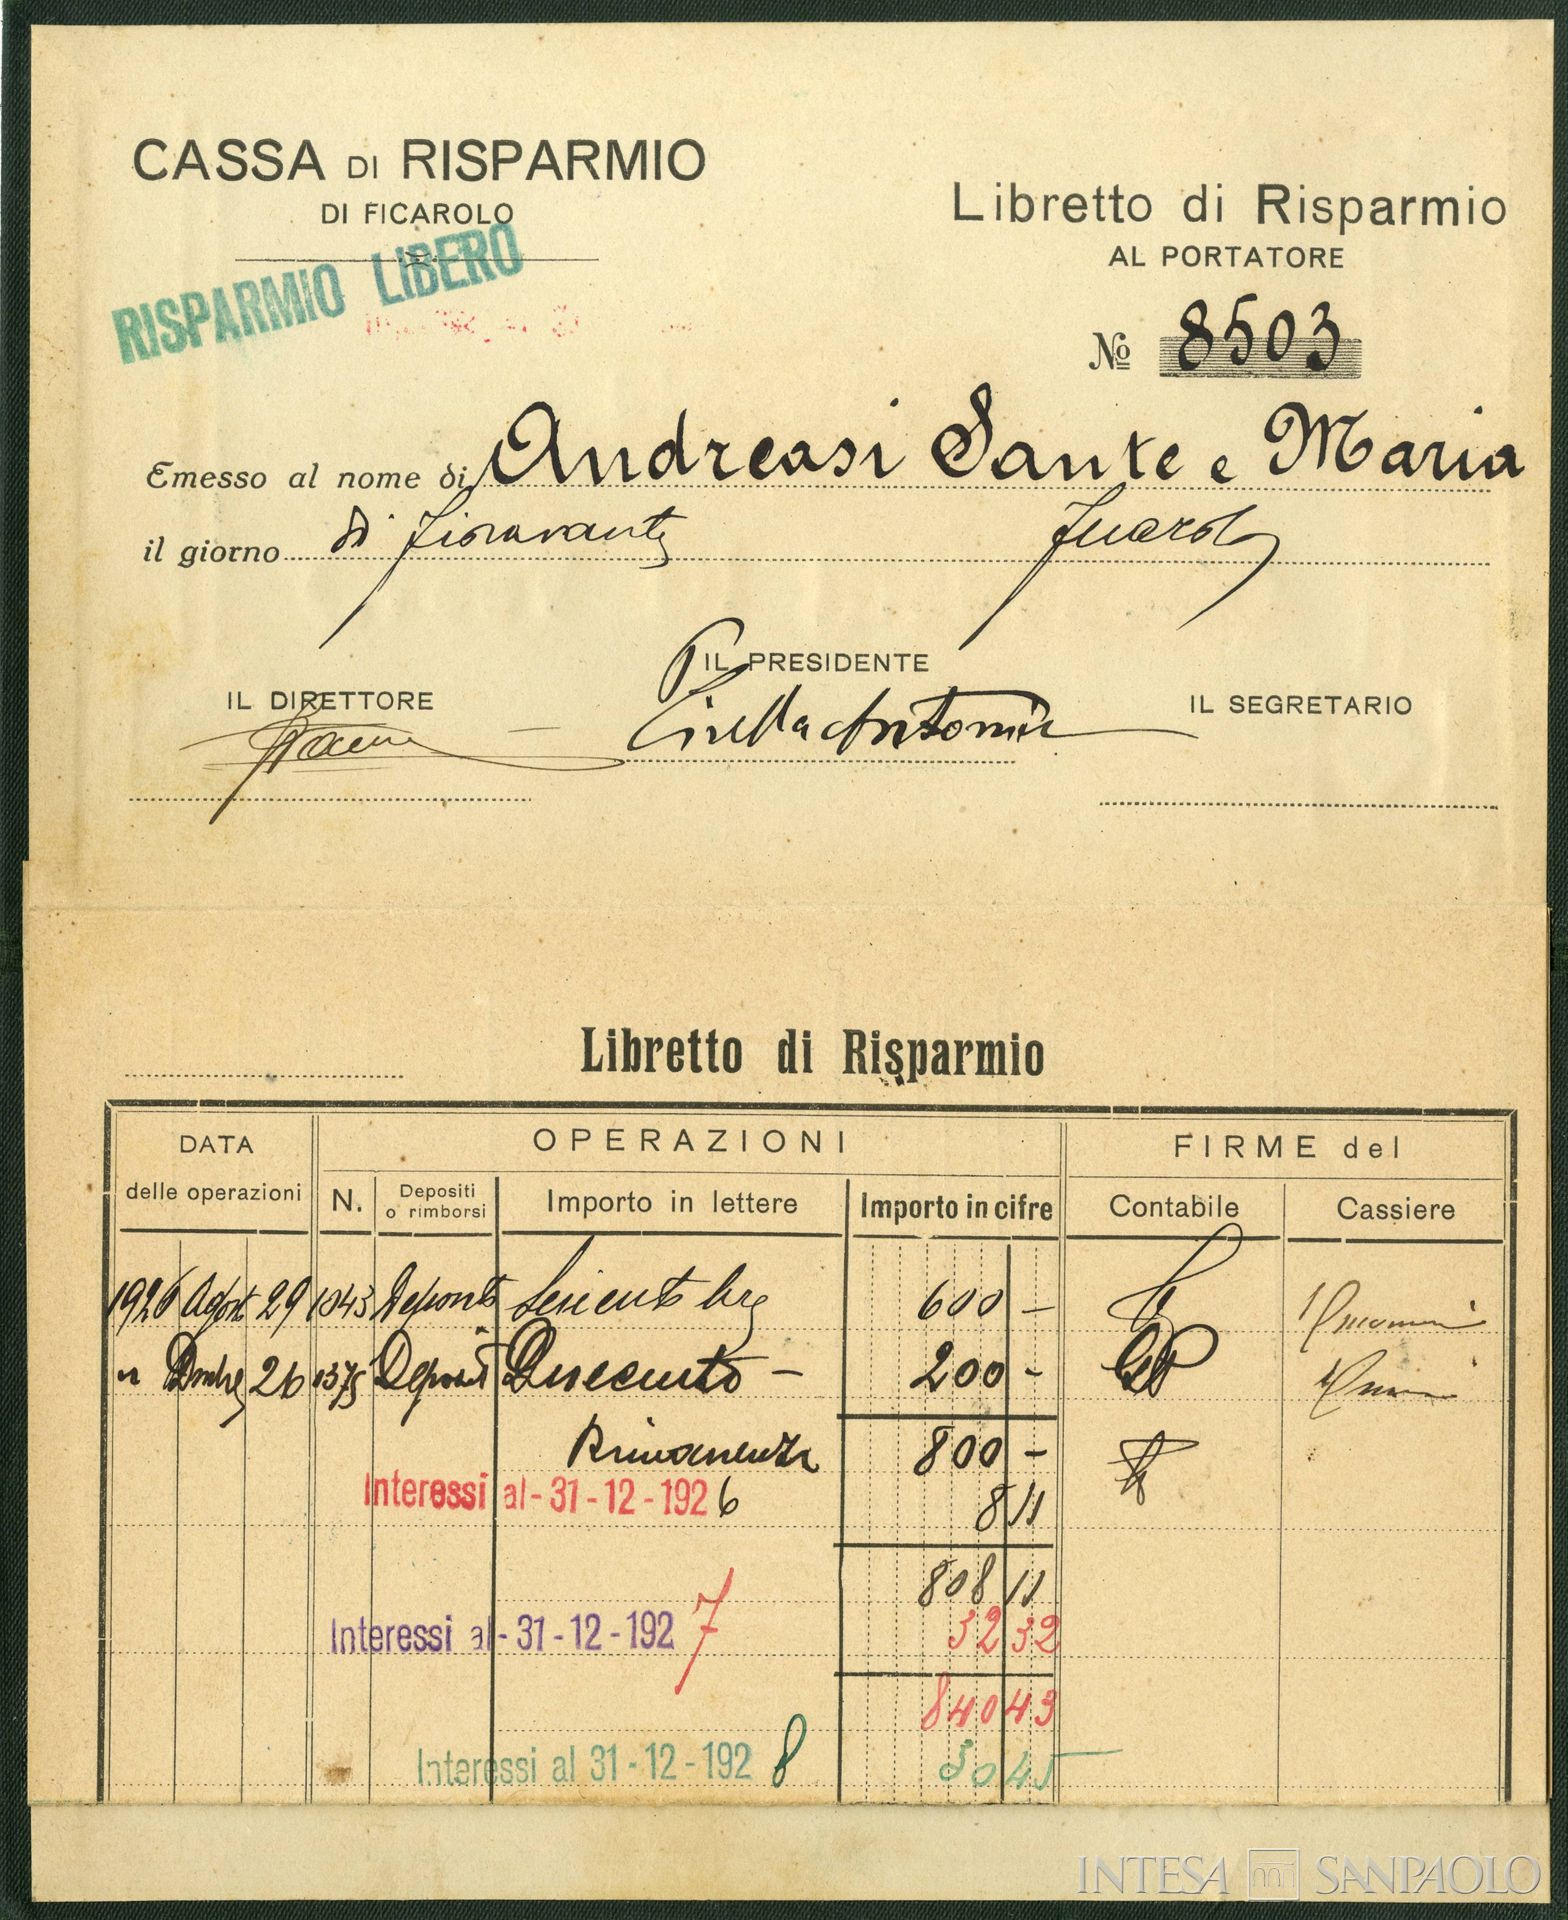 CASSA DI RISPARMIO
DI FICAROLO
RISPARMIO LIBERO
Libretto di Risparmio
AL PORTATORE
No 8503
Emesso al nome di Andreasi Sante e Maria
il giorno di Fioravante Ficarolo
IL DIRETTORE
IL PRESIDENTE
IL SEGRETARIO
Antonio
Libretto di Risparmio
DATA OPERAZIONI FIRME del
delle operazioni N. Depositi o rimborsi Importo in lettere Importo in cifre Contabile Cassiere
1926 Agost 29 1043 Deposito Seicento lire 600 -
" Dmbre 26 1375 Deposito Duecento - 200 -
Rimanenza 800 -
Interessi al - 31 - 12 - 1926 8 11
808 11
Interessi al - 31 - 12 - 1927 32 32
840 43
Interessi al 31 - 12 - 1928 30 45
INTESA SANPAOLO